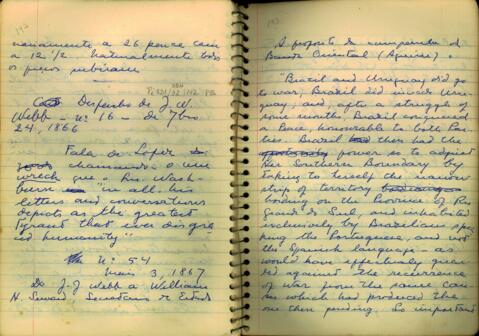 nariamente a 26 pence caiu
a 12 1/2. Naturalmente todos
os preços subiram
Despacho de J. W.
Webb - nº 16 - de 7bro
24, 1866
Fala de Lopez
chamando-o
que o Rio Wash-
burn "in all his
letters and conversations
depicts as the greatest
Tyrant that ever disgra
ced humanity"
Nº 54
Maio 3, 1867
De J. J Webb a William
H. Seward, Secretario de Estado
A proposito da campanha da
Banda Oriental (Aguirre).
"Brazil and Uruguay did go
to war; Brazil did invade Uru-
guay; and, after a struggle of
some months, Brazil conquered
a Peace, honourable to both Par-
ties. Brazil then had the
power so to adjust
the Southern Boundary by
taking to herself the narrow
strip of territory
bording on the Province of Rio
Grande do Sul, and inhabited
exclusively by Brazilians spea-
king the Portuguese, and not
the Spanish language - as
would have effectually guar-
ded against the recurrence
of war from the same cau-
ses which had produced the
one then pending. So important